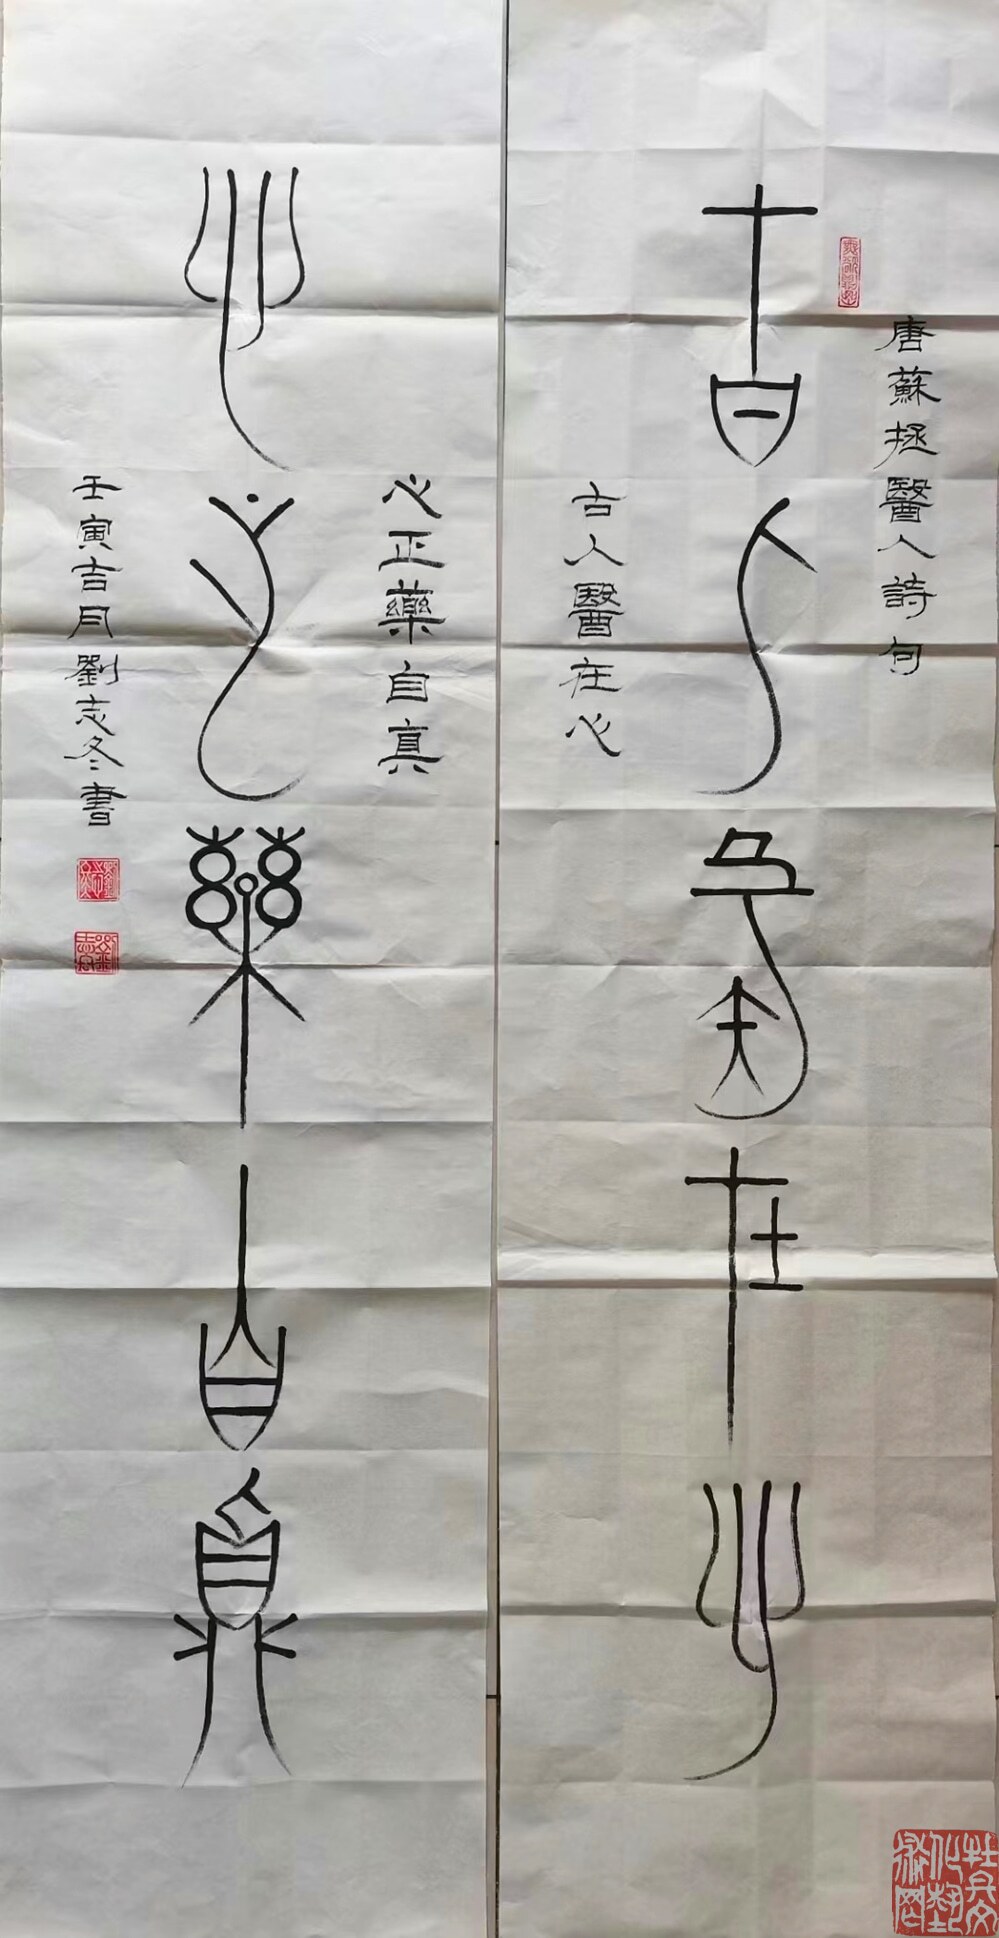 唐蘇拯醫人詩句
古人醫在心
古人醫在心
心正藥自真
心正藥自真
壬寅吉月劉志冬書